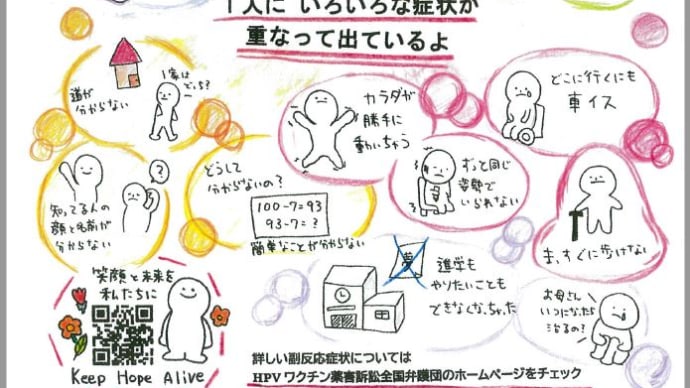 1人に いろいろな症状が
重なって出ているよ
道が
分からない
家は
どっち?
カラダが
勝手に
動いちゃう
どこに行くにも
車イス
知ってる人の
顔と名前が
分からない
?
どうして
分からないの?
100-7=93
93-7=?
簡単なことが分からない
ずっと同じ
姿勢で
いられない
まっすぐに歩けない
笑顔と未来を
私たちに
Keep Hope Alive
夢
進学も
やりたいことも
できなくなっちゃった
お母さん
いつになったら
治るの?
詳しい副反応症状については
HPVワクチン薬害訴訟全国弁護団のホームページをチェック